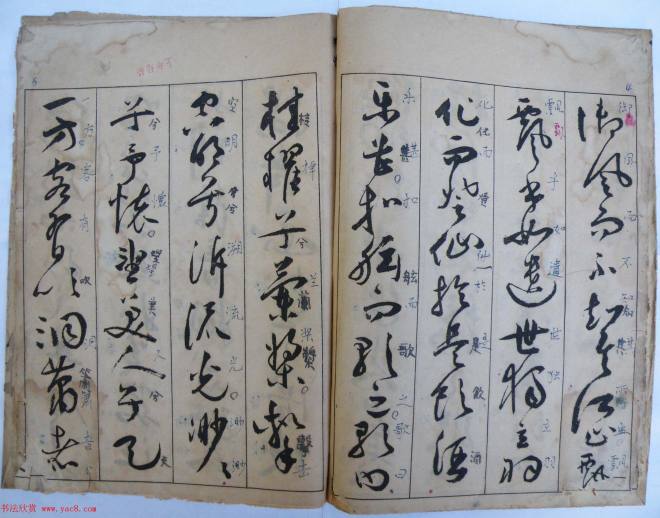 御風而不知其所止飄
飄乎如遺世獨立羽
化而登仙於是飲酒
樂甚。扣舷而歌之。歌曰
桂櫂兮蘭槳。擊
空明兮泝流光。渺渺
兮予懷。望美人兮天
一方客有吹洞簫者
书法欣赏 www.yac8.com